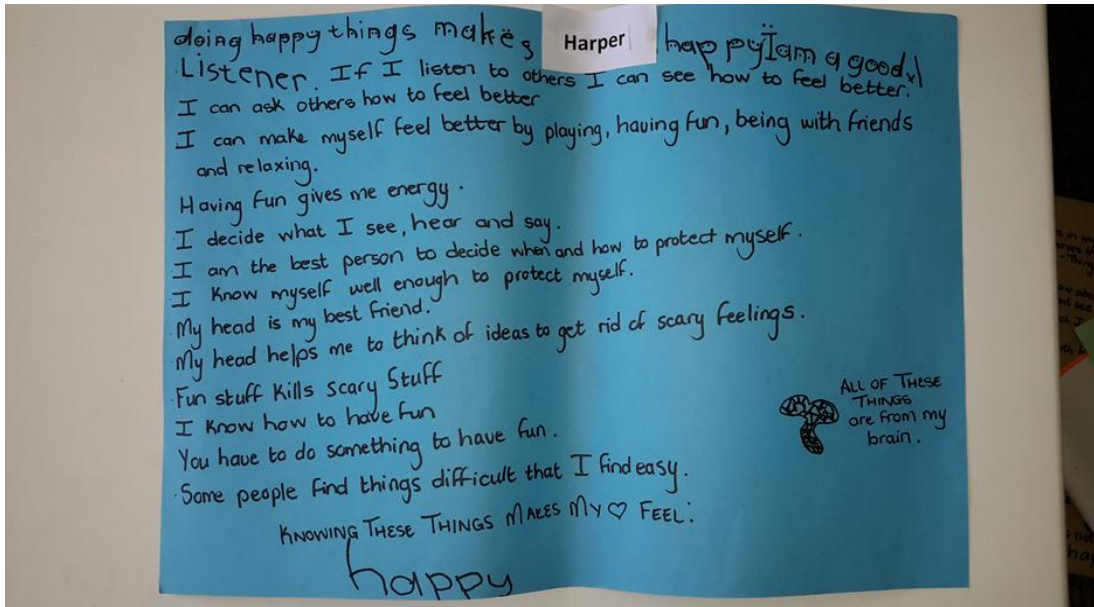 doing happy things makes Harper happy I am a good
Listener. If I listen to others I can see how to feel better.
I can ask others how to feel better
I can make myself feel better by playing, having fun, being with friends
and relaxing.
Having fun gives me energy.
I decide what I see, hear and say.
I am the best person to decide when and how to protect myself.
I know myself well enough to protect myself.
My head is my best friend.
My head helps me to think of ideas to get rid of scary feelings.
Fun stuff kills scary stuff
I know how to have fun
You have to do something to have fun.
Some people find things difficult that I find easy.
ALL OF THESE
THINGS
are from my
brain.
KNOWING THESE THINGS MAKES MY ♡ FEEL:
happy